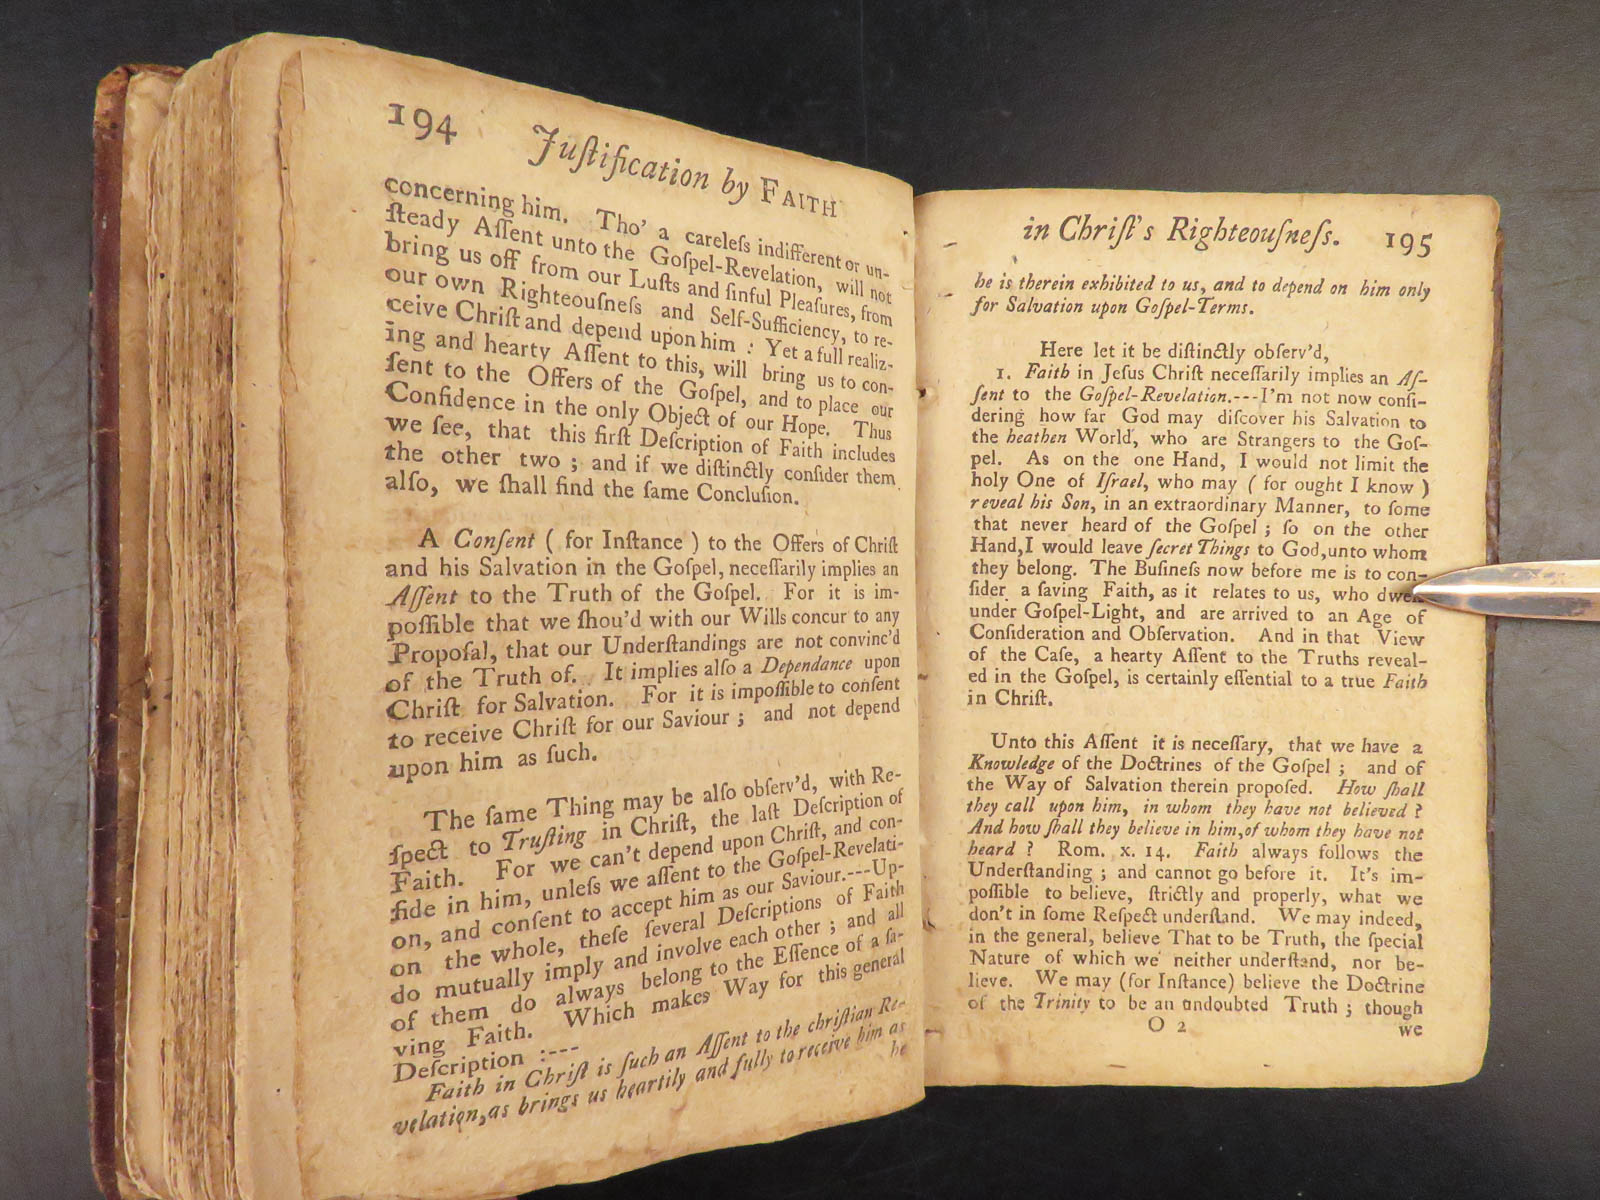 194 Juſtification by FAITH
concerning him. Tho' a careleſs indifferent or un-
ſteady Aſſent unto the Goſpel-Revelation, will not
bring us off from our Luſts and ſinful Pleaſures, from
our own Righteouſneſs and Self-Sufficiency, to re-
ceive Chriſt and depend upon him : Yet a full realiz-
ing and hearty Aſſent to this, will bring us to con-
ſent to the Offers of the Goſpel, and to place our
Confidence in the only Object of our Hope. Thus
we ſee, that this firſt Deſcription of Faith includes
the other two ; and if we diſtinctly conſider them
alſo, we ſhall find the ſame Concluſion.
A Conſent ( for Inſtance ) to the Offers of Chriſt
and his Salvation in the Goſpel, neceſſarily implies an
Aſſent to the Truth of the Goſpel. For it is im-
poſſible that we ſhou'd with our Wills concur to any
Propoſal, that our Underſtandings are not convinc'd
of the Truth of. It implies alſo a Dependance upon
Chriſt for Salvation. For it is impoſſible to conſent
to receive Chriſt for our Saviour ; and not depend
upon him as ſuch.
The ſame Thing may be alſo obſerv'd, with Re-
ſpect to Truſting in Chriſt, the laſt Deſcription of
Faith. For we can't depend upon Chriſt, and con-
fide in him, unleſs we aſſent to the Goſpel-Revelati-
on, and conſent to accept him as our Saviour.---Up-
on the whole, theſe ſeveral Deſcriptions of Faith
do mutually imply and involve each other ; and all
of them do always belong to the Eſſence of a ſa-
ving Faith. Which makes Way for this general
Deſcription :---
Faith in Chriſt is ſuch an Aſſent to the chriſtian Re-
velation, as brings us heartily and fully to receive him as
he
in Chriſt's Righteouſneſs. 195
he is therein exhibited to us, and to depend on him only
for Salvation upon Goſpel-Terms.
Here let it be diſtinctly obſerv'd,
1. Faith in Jeſus Chriſt neceſſarily implies an Aſ-
ſent to the Goſpel-Revelation.---I'm not now conſi-
dering how far God may diſcover his Salvation to
the heathen World, who are Strangers to the Goſ-
pel. As on the one Hand, I would not limit the
holy One of Iſrael, who may ( for ought I know )
reveal his Son, in an extraordinary Manner, to ſome
that never heard of the Goſpel ; ſo on the other
Hand, I would leave ſecret Things to God, unto whom
they belong. The Buſineſs now before me is to con-
ſider a ſaving Faith, as it relates to us, who dwell
under Goſpel-Light, and are arrived to an Age of
Conſideration and Obſervation. And in that View
of the Caſe, a hearty Aſſent to the Truths reveal-
ed in the Goſpel, is certainly eſſential to a true Faith
in Chriſt.
Unto this Aſſent it is neceſſary, that we have a
Knowledge of the Doctrines of the Goſpel ; and of
the Way of Salvation therein propoſed. How ſhall
they call upon him, in whom they have not believed ?
And how ſhall they believe in him, of whom they have not
heard ? Rom. x. 14. Faith always follows the
Underſtanding ; and cannot go before it. It's im-
poſſible to believe, ſtrictly and properly, what we
don't in ſome Reſpect underſtand. We may indeed,
in the general, believe That to be Truth, the ſpecial
Nature of which we neither underſtand, nor be-
lieve. We may (for Inſtance) believe the Doctrine
of the Trinity to be an undoubted Truth ; though
O 2 we